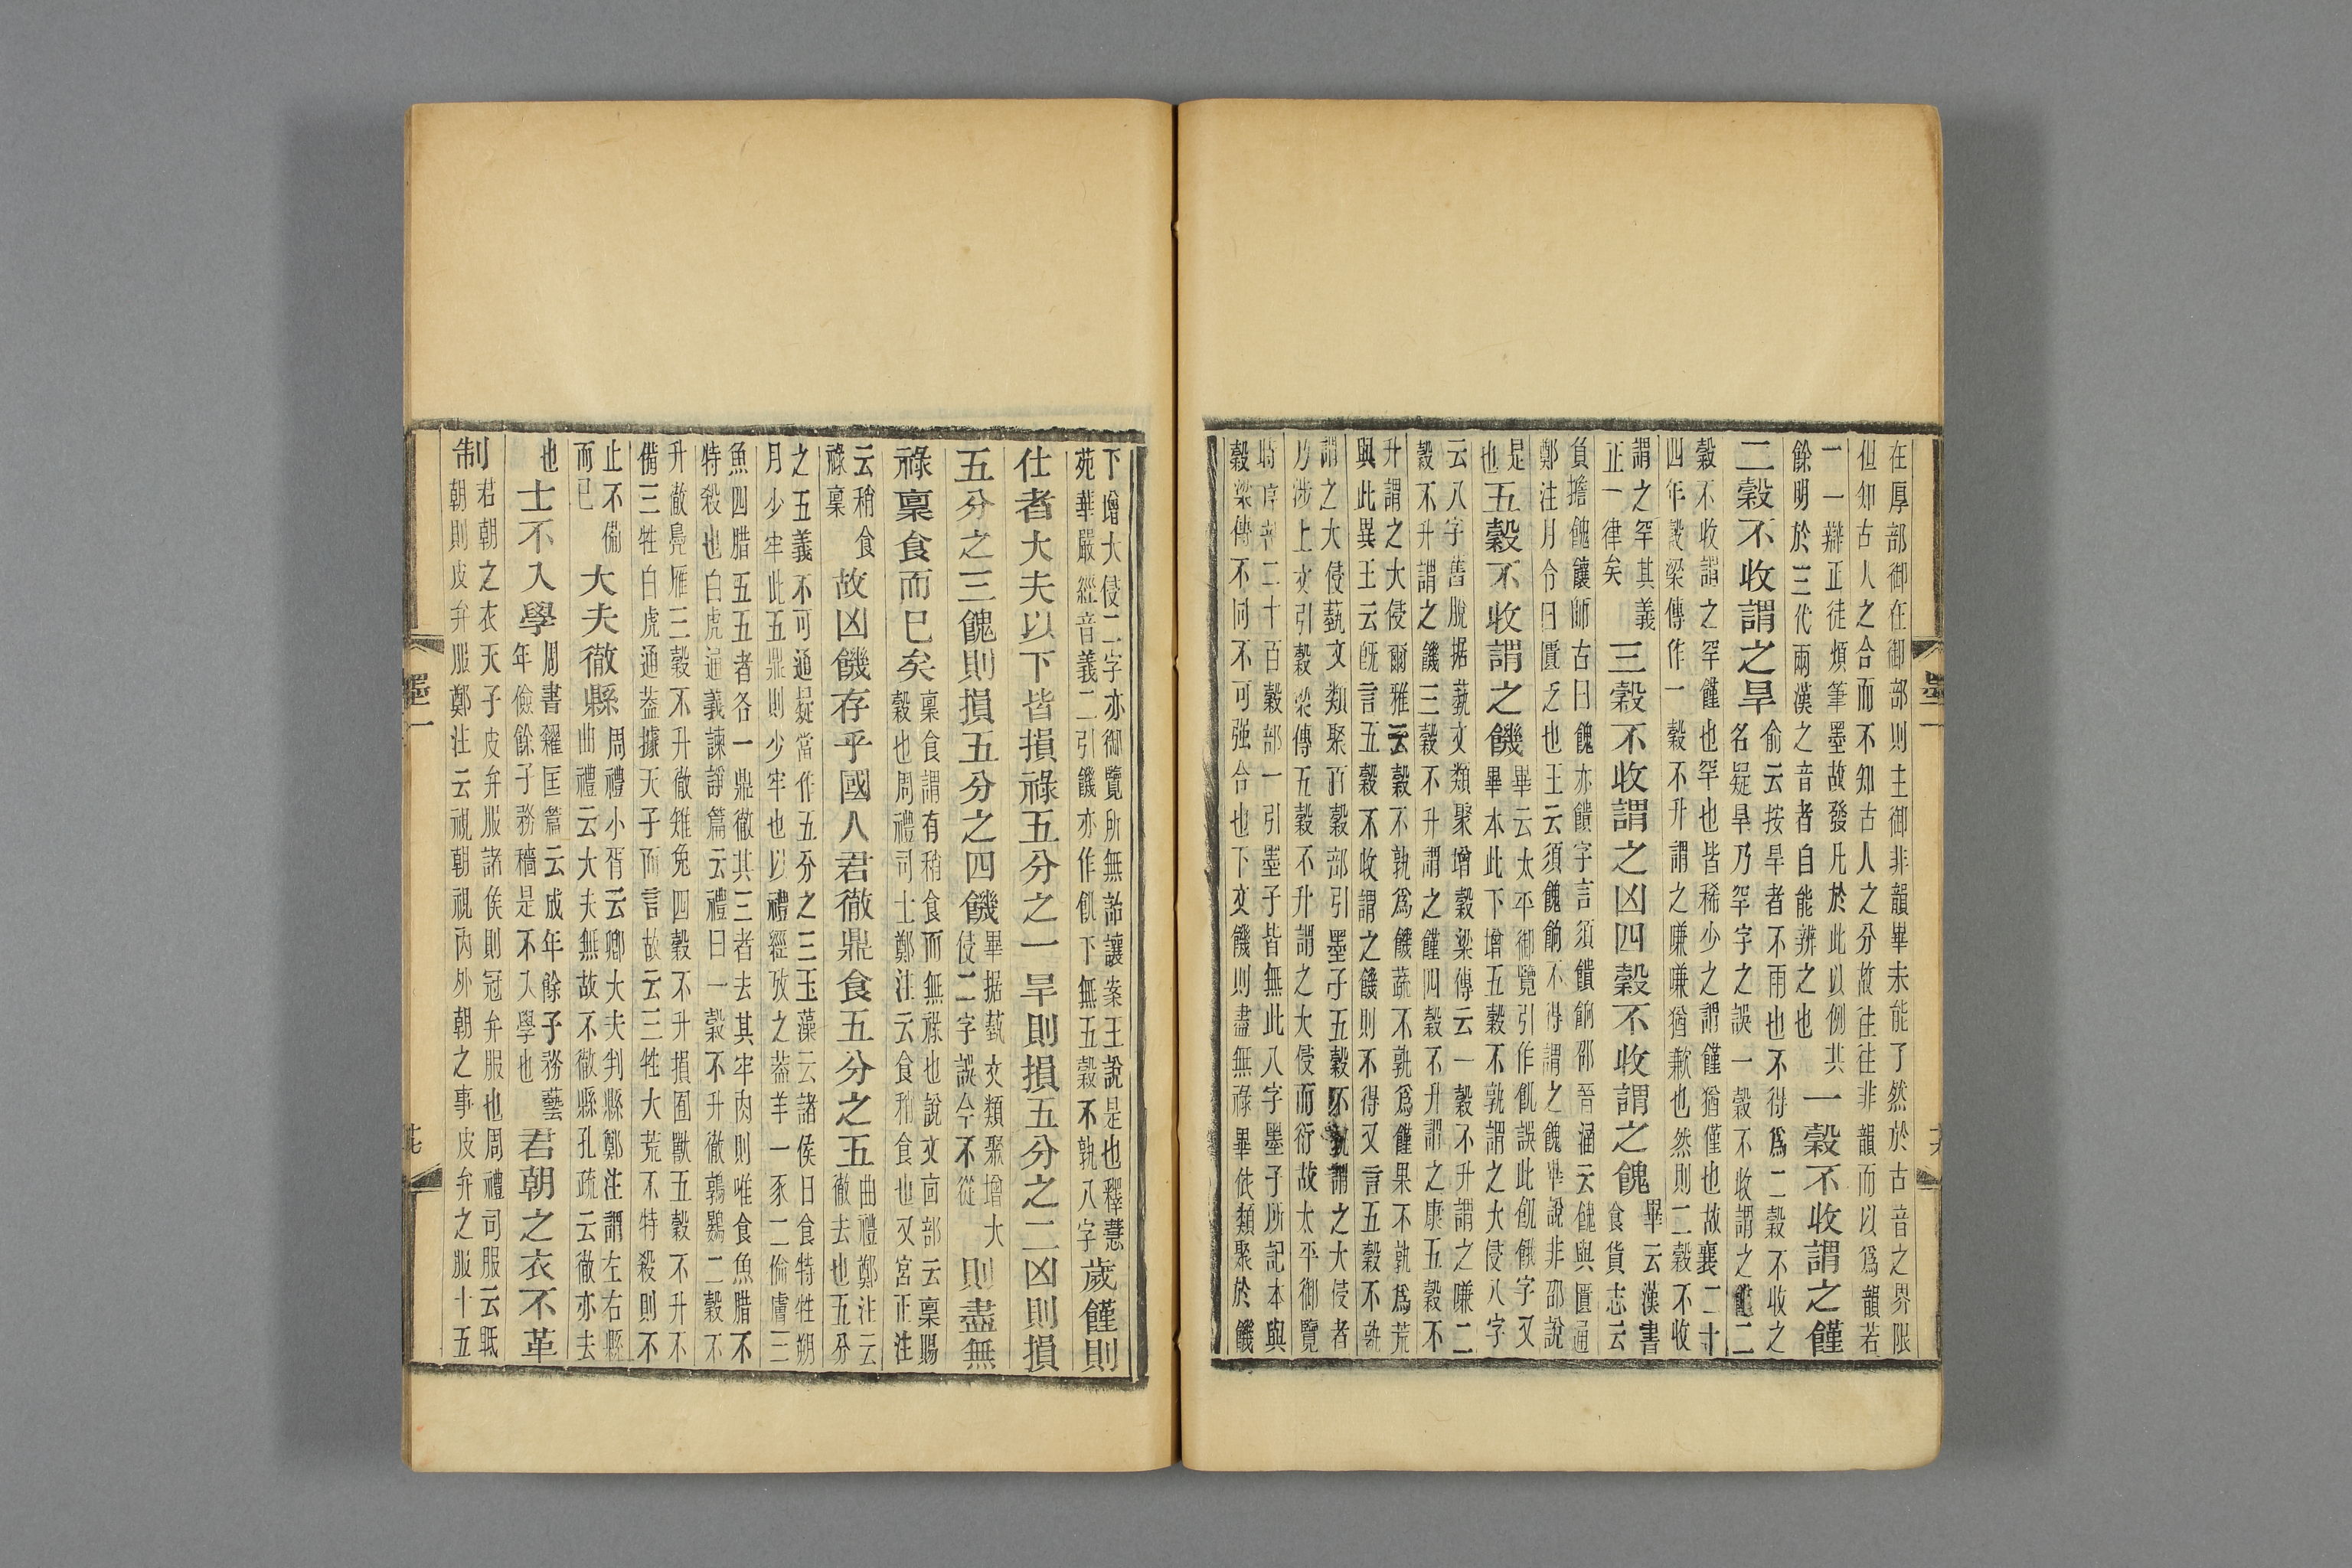 在厚部御在御部則主御非韻畢未能了然於古音之界限
但知古人之合而不知古人之分故往往非韻而以爲韻若
一一辯正徒煩筆墨故發凡於此以例其
餘明於三代兩漢之音者自能辨之也
一穀不收謂之饉
二穀不收謂之旱
俞云按旱者不雨也不得爲二穀不收之
名疑旱乃罕字之誤一穀不收謂之饉二
穀不收謂之罕饉也罕也皆稀少之謂饉猶僅也故襄二十
四年穀梁傳作一穀不升謂之嗛嗛猶歉也然則二穀不收
謂之罕其義
正一律矣
三穀不收謂之凶四穀不收謂之餽
畢云漢書
食貨志云
負擔餽饟師古曰餽亦饋字言須饋餉邵晉涵云餽與匱通
鄭注月令曰匱乏也王云須餽餉不得謂之餽畢說非邵說
是
也
五穀不收謂之饑
畢云太平御覽引作飢誤此飢餓字又
畢本此下增五穀不孰謂之大侵八字
云八字舊脫据蓺文類聚增穀梁傳云一穀不升謂之嗛二
穀不升謂之饑三穀不升謂之饉四穀不升謂之康五穀不
升謂之大侵爾雅云穀不孰爲饑蔬不孰爲饉果不孰爲荒
與此異王云旣言五穀不收謂之饑則不得又言五穀不孰
謂之大侵蓺文類聚百穀部引墨子五穀不孰謂之大侵者
乃涉上文引穀梁傳五穀不升謂之大侵而衍故太平御覽
時序部二十百穀部一引墨子皆無此八字墨子所記本與
穀梁傳不同不可强合也下文饑則盡無祿畢依類聚於饑
墨一
下增大侵二字亦御覽所無詒讓案王說是也釋慧
苑華嚴經音義二引饑亦作飢下無五穀不孰八字
歲饉則
仕者大夫以下皆損祿五分之一旱則損五分之二凶則損
五分之三餽則損五分之四饑
畢据蓺文類聚增大
侵二字誤今不從
則盡無
祿稟食而已矣
稟食謂有稍食而無祿也說文㐭部云稟賜
穀也周禮司士鄭注云食稍食也又宮正注
云稍食
祿稟
故凶饑存乎國人君徹鼎食五分之五
曲禮鄭注云
徹去也五分
之五義不可通疑當作五分之三玉藻云諸侯日食特牲朔
月少牢此五鼎則少牢也以禮經攷之葢羊一豕二倫膚三
魚四腊五五者各一鼎徹其三者去其牢肉則唯食魚腊不
特殺也白虎通義諫諍篇云禮曰一穀不升徹鶉鷃二穀不
升徹鳧雁三穀不升徹雉兔四穀不升損囿獸五穀不升不
備三牲白虎通葢據天子而言故云三牲大荒不特殺則不
止不備
而已
大夫徹縣
周禮小胥云卿大夫判縣鄭注謂左右縣
曲禮云大夫無故不徹縣孔疏云徹亦去
也
士不入學
周書糴匡篇云成年餘子務藝
年儉餘子務穡是不入學也
君朝之衣不革
制
君朝之衣天子皮弁服諸侯則冠弁服也周禮司服云眡
朝則皮弁服鄭注云視朝視內外朝之事皮弁之服十五
墨一